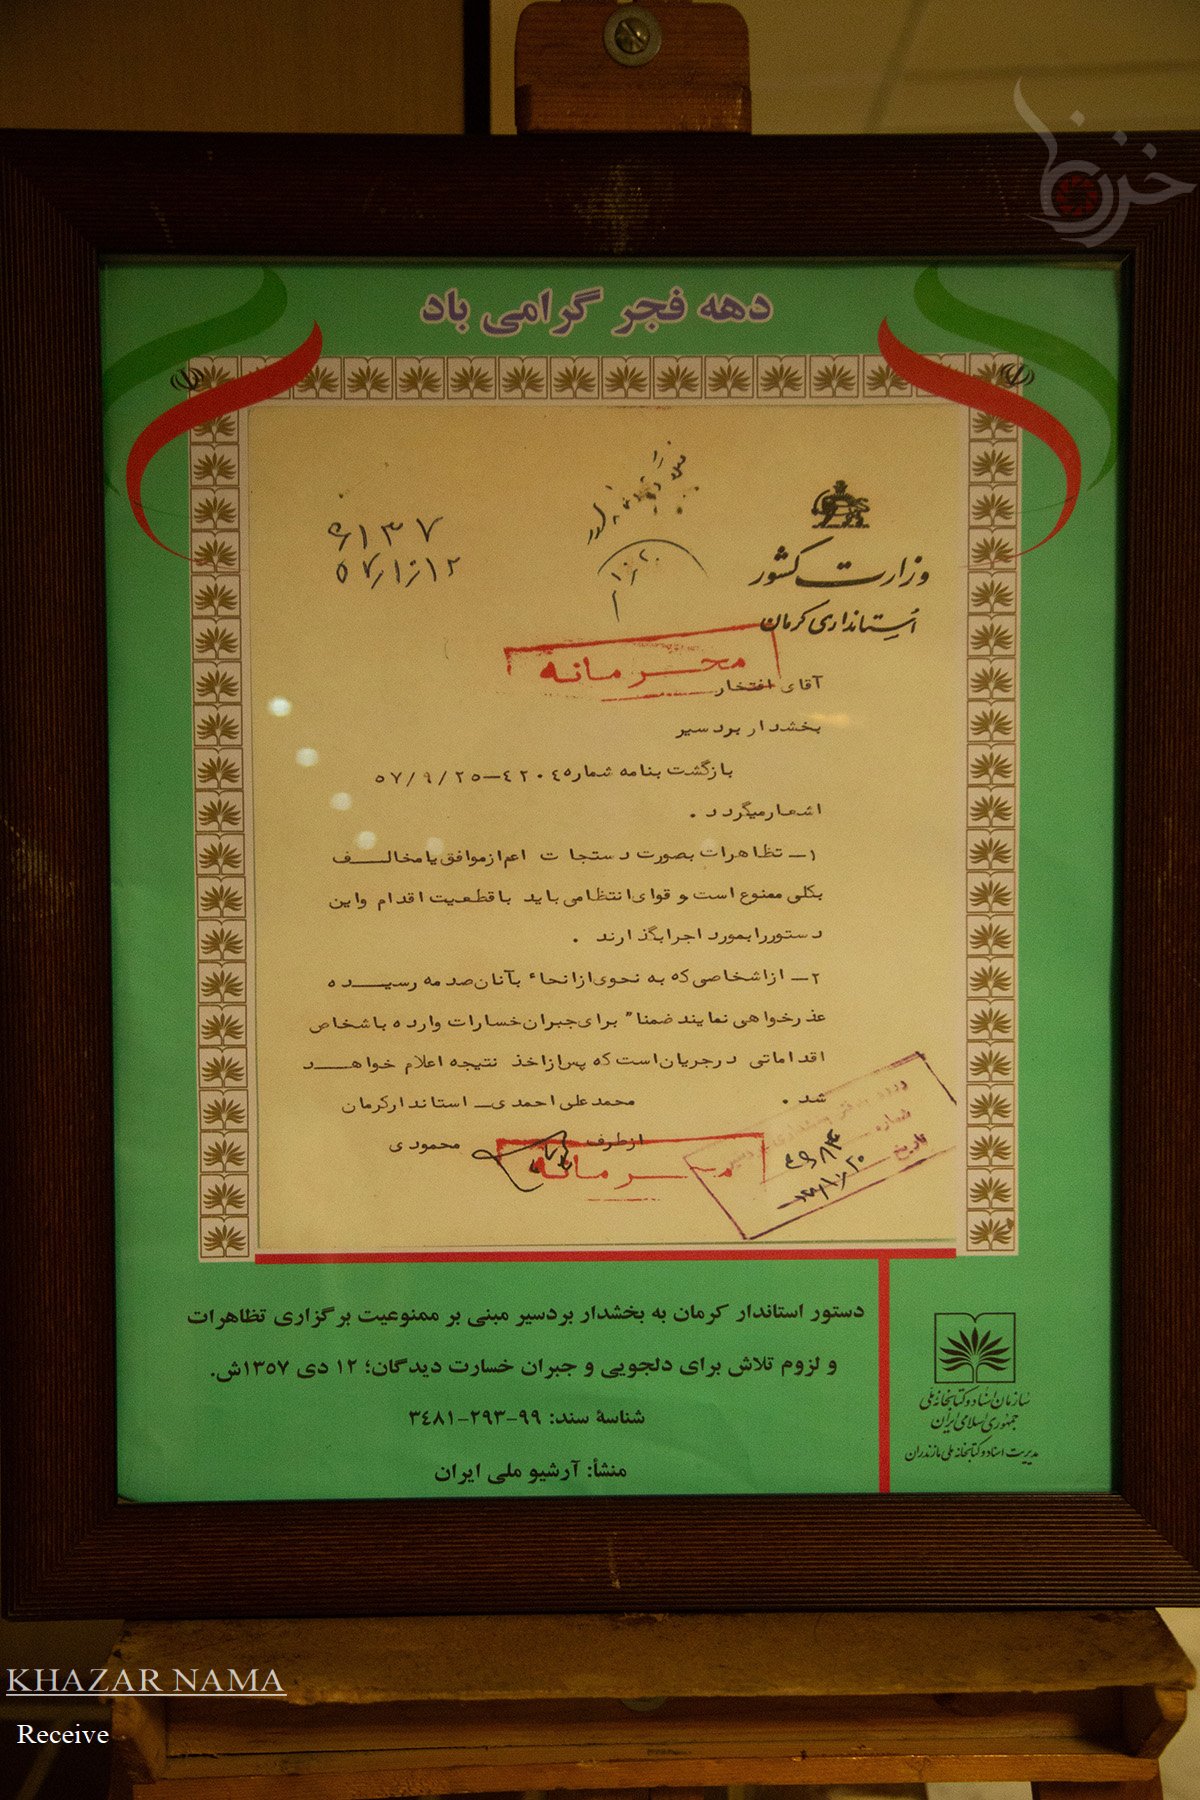 خزرنما
دهه فجر گرامی باد
وزارت کشور
استانداری کرمان
۶۱۳۷
۵۷/۱۰/۱۲
۱۰/۲۰
محرمانه
آقای افتخار
بخشدار بردسیر
بازگشت بنامه شماره ۴۲۰۴–۵۷/۹/۲۵
اشعار میگردد .
۱ــ تظاهرات بصورت دستجات اعم از موافق یا مخالف
بکلی ممنوع است و قوای انتظامی باید با قطعیت اقدام و این
دستور را بمورد اجرا بگذارند .
۲ــ از اشخاصی که به نحوی از انحاء بآنان صدمه رسیده
عذرخواهی نمایند ضمنا" برای جبران خسارات وارده باشخاص
اقداماتی در جریان است که پس از اخذ نتیجه اعلام خواهد
شد .
محمدعلی احمدی ــ استاندار کرمان
از طرف محمودی
محرمانه
شماره
تاریخ
دستور استاندار کرمان به بخشدار بردسیر مبنی بر ممنوعیت برگزاری تظاهرات
و لزوم تلاش برای دلجویی و جبران خسارت دیدگان؛ ۱۲ دی ۱۳۵۷ش.
شناسهٔ سند: ۹۹-۲۹۳-۳۴۸۱
منشأ: آرشیو ملی ایران
سازمان اسناد و کتابخانه ملی
جمهوری اسلامی ایران
مدیریت اسناد و کتابخانه ملی مازندران
KHAZAR NAMA
Receive